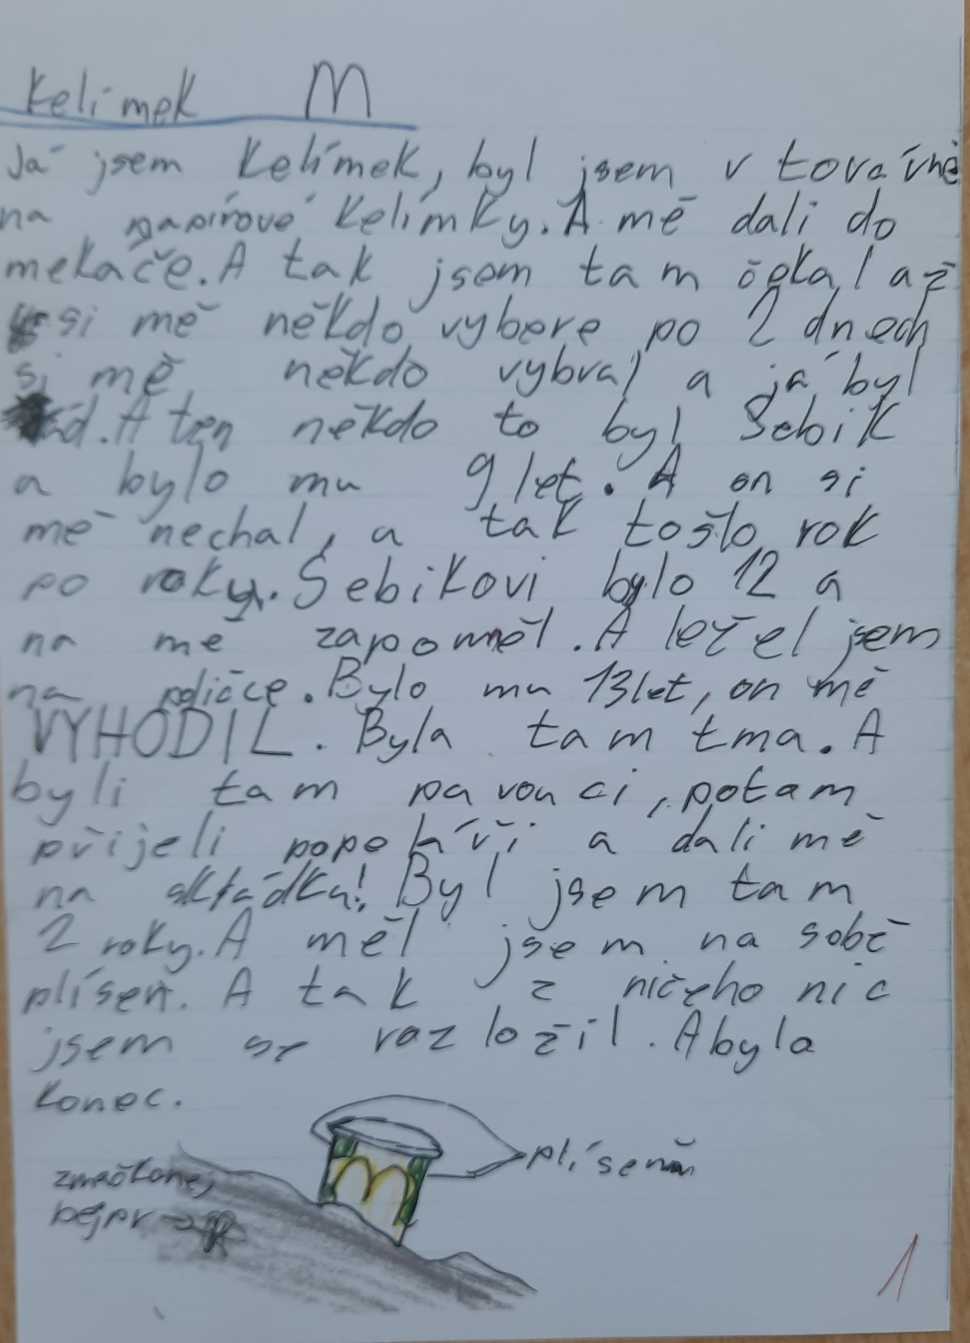 Kelímek M
Já jsem Kelímek, byl jsem v továrně
na papírové Kelímky. A mě dali do
mekáče. A tak jsem tam čekal až
si mě někdo vybere po 2 dnech
si mě někdo vybral a já byl
rád. A ten někdo to byl Sebik
a bylo mu 9 let. A on si
mě nechal, a tak tošlo rok
po roky. Sebikovi bylo 12 a
na mě zapoměl. A ležel jsem
na poličce. Bylo mu 13let, on mě
VYHODIL. Byla tam tma. A
byli tam pavouci, potam
přijeli popeláři a dali mě
na skládku! Byl jsem tam
2 roky. A měl jsem na sobě
plíseň. A tak z ničeho nic
jsem se razložil. Abyla
konec.
plíseň
zmačkanej
pejpr
1